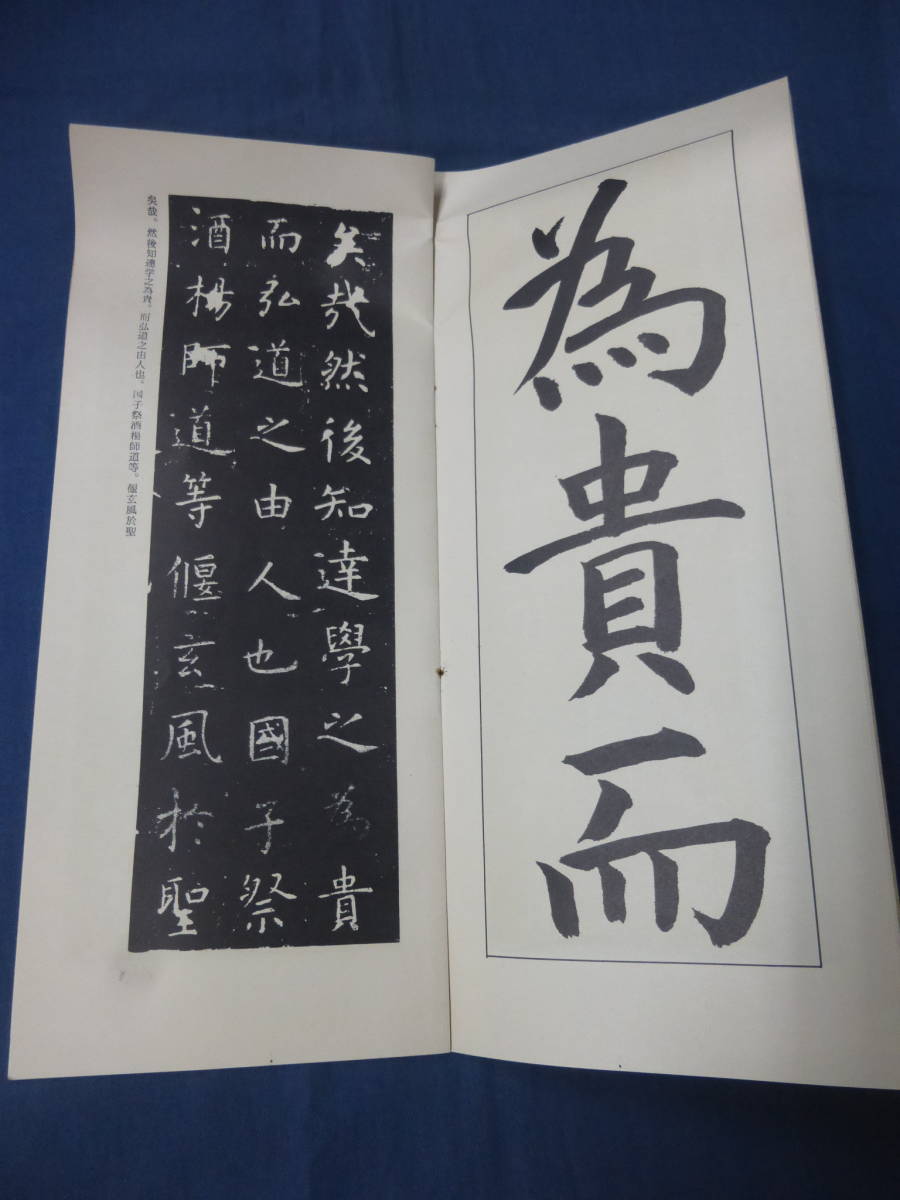 為貴而
矣哉然後知達學之為貴
而弘道之由人也國子祭
酒楊師道等偃玄風於聖
矣哉。然後知達学之為貴。而弘道之由人也。国子祭酒楊師道等。偃玄風於聖